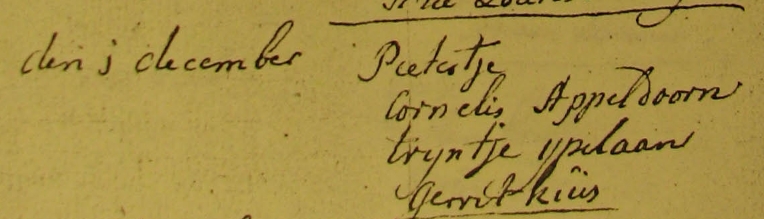 den j december Pietertje
Cornelis Appeldoorn
tryntje ypelaan
Gerrit küis